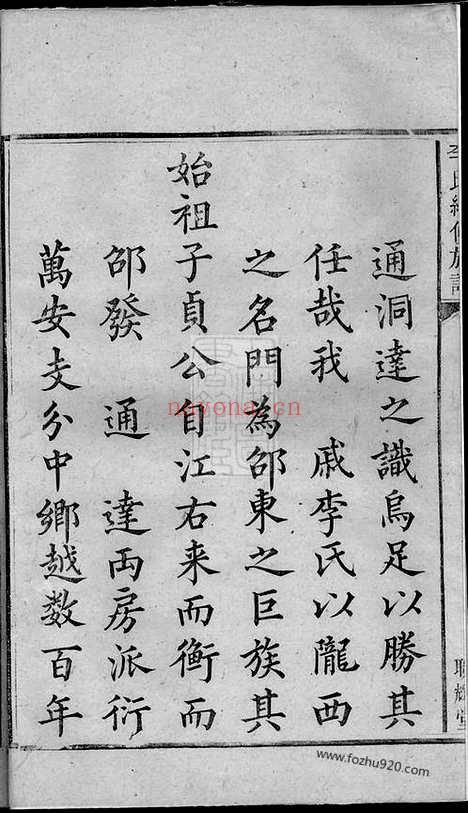 李氏續修族譜
通洞達之識烏足以勝其
任哉我 戚李氏以隴西
之名門為邵東之巨族其
始祖子貞公自江右来而衡而
邵發 通 達两房派衍
萬安支分中鄉越数百年
nayona.cn
www.fozhu920.com